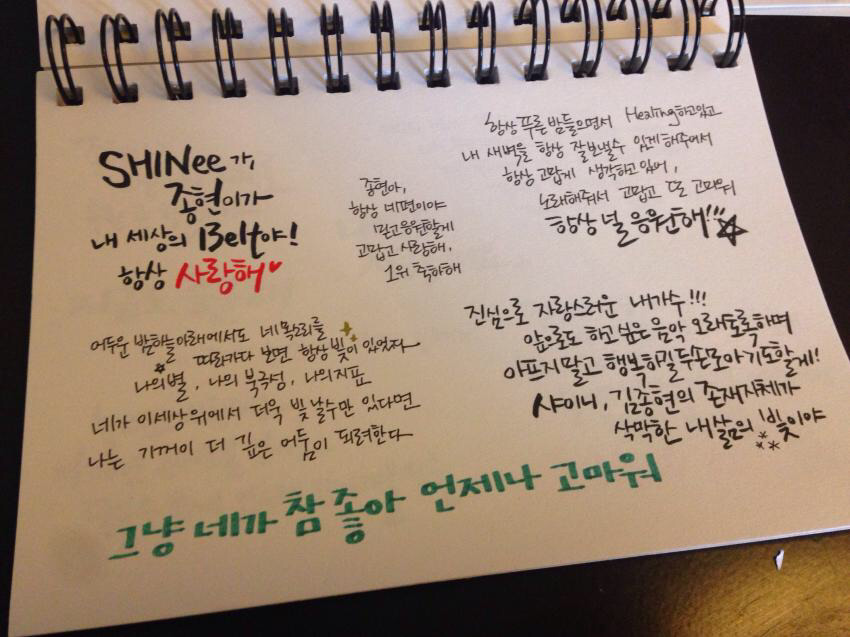 SHINee가,
종현이가
내 세상의 Belt야!
항상 사랑해♥
종현아,
항상 네편이야
믿고응원할게
고맙고 사랑해,
1위 축하해
항상 푸른 밤들으면서 Healing하고있고
내 새벽을 항상 잘보낼수 있게해주어서
항상 고맙게 생각하고있어,
노래해줘서 고맙고 또 고마워
항상 널 응원해!!!☆
어두운 밤하늘아래에서도 네목소리를
따라가다 보면 항상빛이 있었다
나의별, 나의 북극성, 나의지표
네가 이세상위에서 더욱 빛날수만 있다면
나는 기꺼이 더 깊은 어둠이 되련한다
진심으로 자랑스러운 내가수!!!
앞으로도 하고싶은음악 오래도록하며
아프지말고 행복하길두손모아기도할게!
샤이니, 김종현의 존재자체가
삭막한 내삶의 빛이야
그냥 네가 참 좋아 언제나 고마워